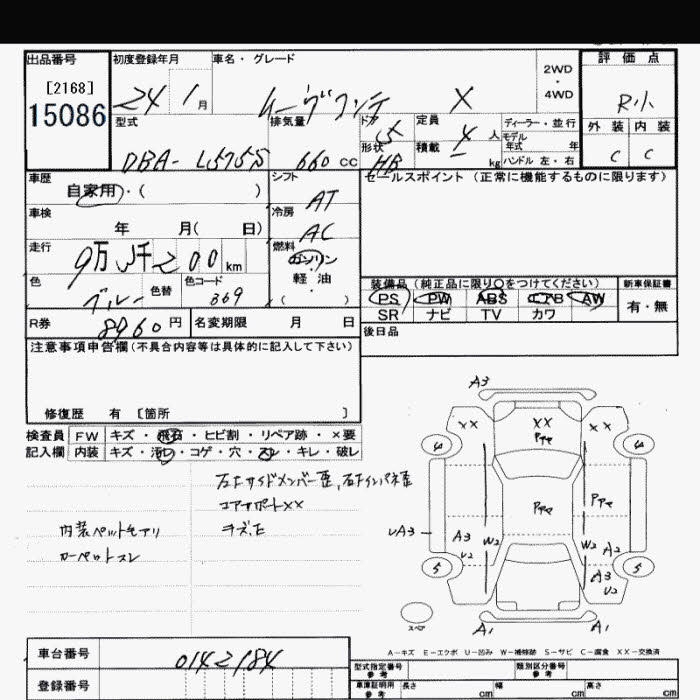 出品番号 初度登録年月 車名・グレード 2WD・4WD 評価点
[2168]
15086
24 1月 ムーヴコンテ X R小
型式 排気量 ドア 5 定員 4人 ディーラー・並行 外装 内装
モデル年式 年
DBA-L575S 660cc 形状 HB 積載 kg ハンドル 左・右 C C
車歴 シフト セールスポイント(正常に機能するものに限ります)
自家用・( ) AT
車検 冷房
年 月( 日) AC
走行 燃料
9万 千200km ガソリン
色 色替 色コード 軽油 装備品(純正品に限り○をつけてください) 新車保証書
ブルー ( ) PS PW ABS エアB AW 有・無
SR ナビ TV カワ
R券 8960円 名変期限 月 日 後日品
注意事項申告欄(不具合内容等は具体的に記入して下さい)
修復歴 有 [箇所 ]
検査員 FW キズ・飛石・ヒビ割・リペア跡・×要
記入欄 内装 キズ・汚れ・コゲ・穴・スレ・キレ・破レ
左Fサイドメンバー歪,右Fインパネ歪
コアサポートXX
内装ペットモアリ キズ,E
カーペットスレ
A3
XX XX XX
4 Pアセ 4
Pアセ Pアセ
UA3 A3 W2 W2 A2
U2 A3
5 U2 5
スペア A1 A1
A-キズ E-エクボ U-凹み W-補修跡 S-サビ C-腐食 XX-交換済
車台番号 0142184
登録番号
型式指定番号 参考 類別区分番号 参考
車庫証明用 参考 長さ cm 幅 cm 高さ cm